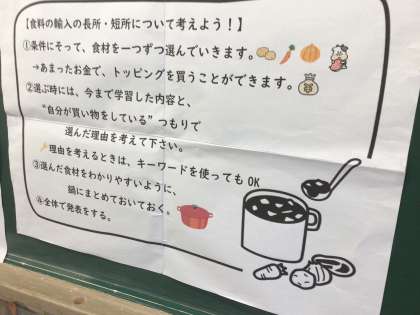 【食料の輸入の長所・短所について考えよう!】
①条件にそって、食材を一つずつ選んでいきます。
→あまったお金で、トッピングを買うことができます。
②選ぶ時には、今まで学習した内容と、
“自分が買い物をしている”つもりで
選んだ理由を考えて下さい。
理由を考えるときは、キーワードを使ってもOK
③選んだ食材をわかりやすいように、
鍋にまとめておいておく。
④全体で発表をする。